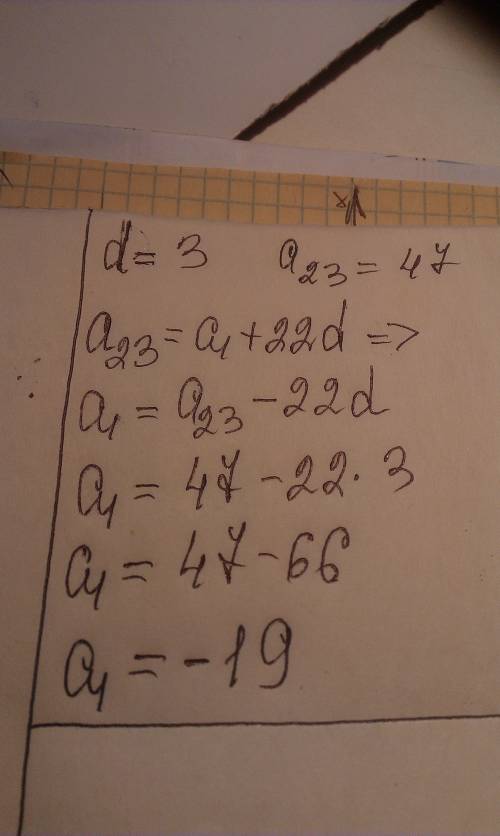 d = 3 a₂₃ = 47
a₂₃ = a₁ + 22d =>
a₁ = a₂₃ - 22d
a₁ = 47 - 22 · 3
a₁ = 47 - 66
a₁ = -19